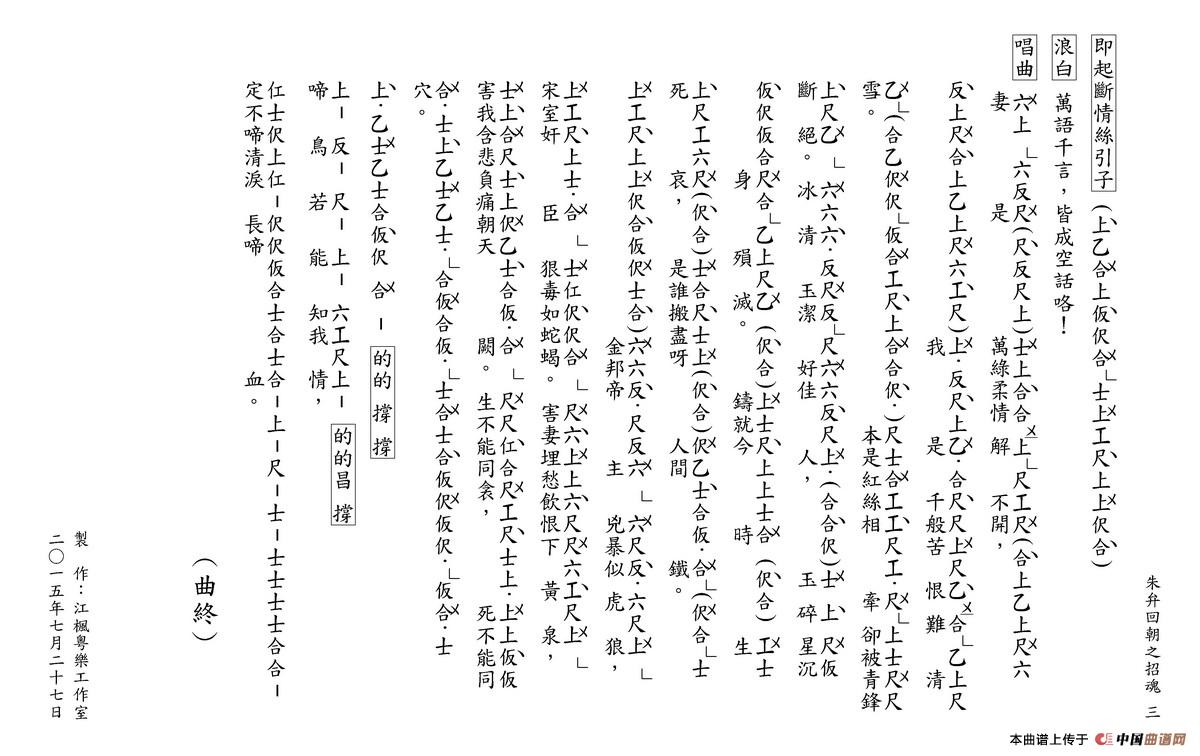 朱弁回朝之招魂 三
即起斷情絲引子 (上乙合上仮伬合└士上工尺上上伬合)
浪白 萬語千言，皆成空話咯！
唱曲 六上└六反尺(尺反尺上)士上合合上└尺工尺(合上乙上尺六
妻 是 萬緣柔情 解 不開，
反上尺合上乙上尺六工尺)上·反尺上乙·合尺尺上尺乙合└乙上尺
我 是 千般苦 恨 難 清
乙└(合乙伬伬└仮合工尺上合合伬·)尺士合工工尺工·尺└上士尺尺
雪。 本是紅絲相 牽 卻被青鋒
上尺乙└六六六·反尺反└尺六六反尺上·(合合伬)士└上 尺仮
斷 絕。冰 清 玉潔 好佳 人， 玉 碎 星沉
仮伬仮合尺合└乙上尺乙(伬合)上士尺上上士合(伬合)工士
身 殞 滅。 鑄就今 時 生
上尺工六尺(伬合)士合尺士上(伬合)伬乙士合仮·合└(伬合└士
死 哀， 是誰搬盡呀 人間 鐵。
上工尺上上伬合仮伬士合)六六反·尺反六└六尺反·六尺上└
金邦帝 主 兇暴似 虎 狼，
上工尺上士·合└士仜伬伬合└尺六上上六尺尺六工尺上└
宋室奸 臣 狠毒如蛇蝎。 害妻埋愁飲恨下 黃 泉，
士上合尺士上伬乙士合仮·合└尺尺仜合尺工尺士上·上上仮仮
害我含悲負痛朝天 闕。 生不能同衾， 死不能同
合·士上乙士乙士·└合仮合仮·└士合士合仮伬仮伬·└仮合·士
穴。
上·乙士乙士合仮伬 合 － 的的 撐 撐
上－ 反－ 尺－ 上－ 六工尺上－ 的的昌 撐
啼 鳥 若 能 知我 情，
仜士伬上仜－伬伬仮合士合士合－上－尺－士－士士士士合合－
定不啼清淚 長啼 血。
(曲終)
製 作：江楓粵樂工作室
二〇一五年七月二十七日
本曲谱上传于 中国曲谱网